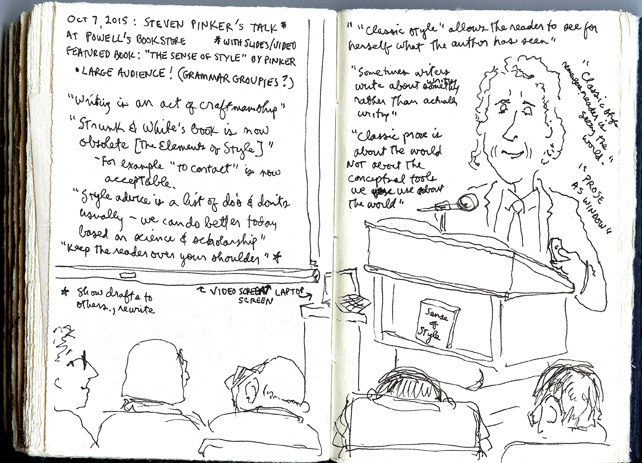 Oct 7, 2015: STEVEN PINKER'S TALK*
AT POWELL'S BOOKSTORE *WITH SLIDES/VIDEO
FEATURED BOOK: "THE SENSE OF STYLE" BY PINKER
• LARGE AUDIENCE! (GRAMMAR GROUPIES?)
"Writing is an act of craftmanship"
"Strunk & White's book is now
obsolete [The Elements of Style]"
- For example "to contact" is now
acceptable.
"Style advice is a list of dos & don'ts
usually - we can do better today
based on science & scholarship"
"Keep the reader over your shoulder" *
* Show drafts to
others, rewrite
VIDEO SCREEN LAPTOP
SCREEN
" "Classic style" allows the reader to see for
herself what the author has seen"
"Sometimes writers
write about writing
rather than actually
writing"
"Classic prose is
about the world
NOT about the
conceptual tools
we use about
the world"
"Classic style
reader is
seeing the
world"
"PROSE
AS WINDOW"
Sense
of
Style